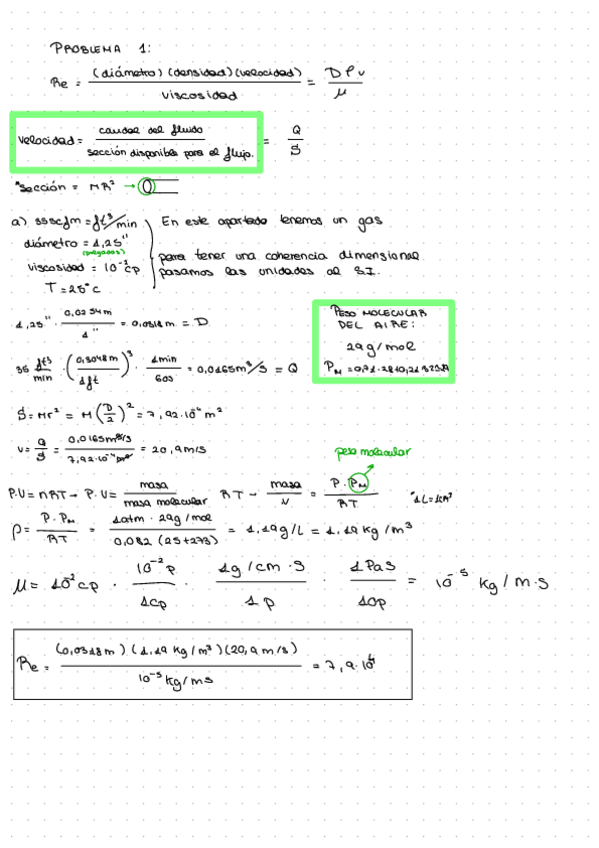 PROBLEMA 1:
Re = (diámetro)(densidad)(velocidad) / viscosidad = Dρv / μ
velocidad = caudal del fluido / sección disponible para el flujo. = Q / S
*Sección = πR² →
a) 35scfm = ft³/min
diámetro = 1,25"
(pulgadas)
viscosidad = 10⁻²cp
T = 25°C
En este apartado tenemos un gas
para tener una coherencia dimensional
pasamos las unidades al S.I.
1,25" · 0,0254m / 1" = 0,0318m = D
35 ft³/min · (0,3048m / 1ft)³ · 1min / 60s = 0,0165m³/s = Q
PESO MOLECULAR
DEL AIRE:
29g/mol
S = πr² = π(D/2)² = 7,92·10⁻⁴m²
v = Q/S = 0,0165m³/s / 7,92·10⁻⁴m² = 20,9m/s
peso molecular
P·V = nRT → P·V = masa / masa molecular RT → masa / V = P·PM / RT
ρ = P·PM / RT = 1atm · 29g/mol / 0,082 (25+273) = 1.19g/L = 1.19 kg/m³
μ = 10⁻²cp · 10⁻²p / 1cp · 1g/cm·s / 1p · 1Pas / 10p = 10⁻⁵ kg/m·s
Re = (0,0318m)(1,19 kg/m³)(20,9 m/s) / 10⁻⁵kg/ms = 7,9·10⁴